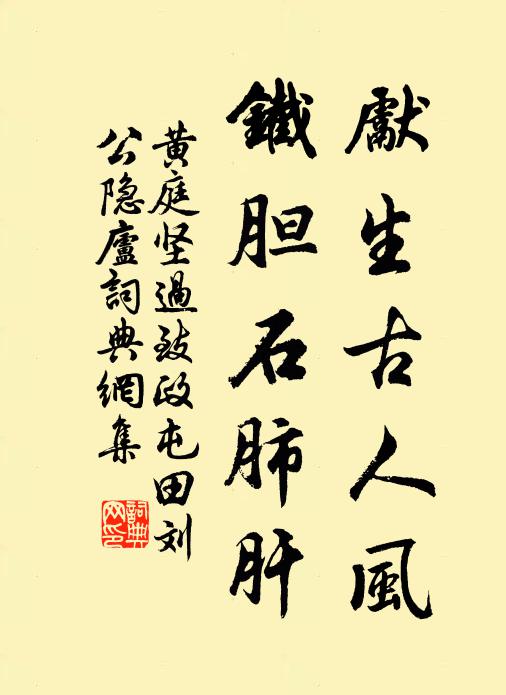 獻生古人風
鐵胆石肺肝
黄庭坚過致政屯田刘
公隐廬詞典網集
詞典网印